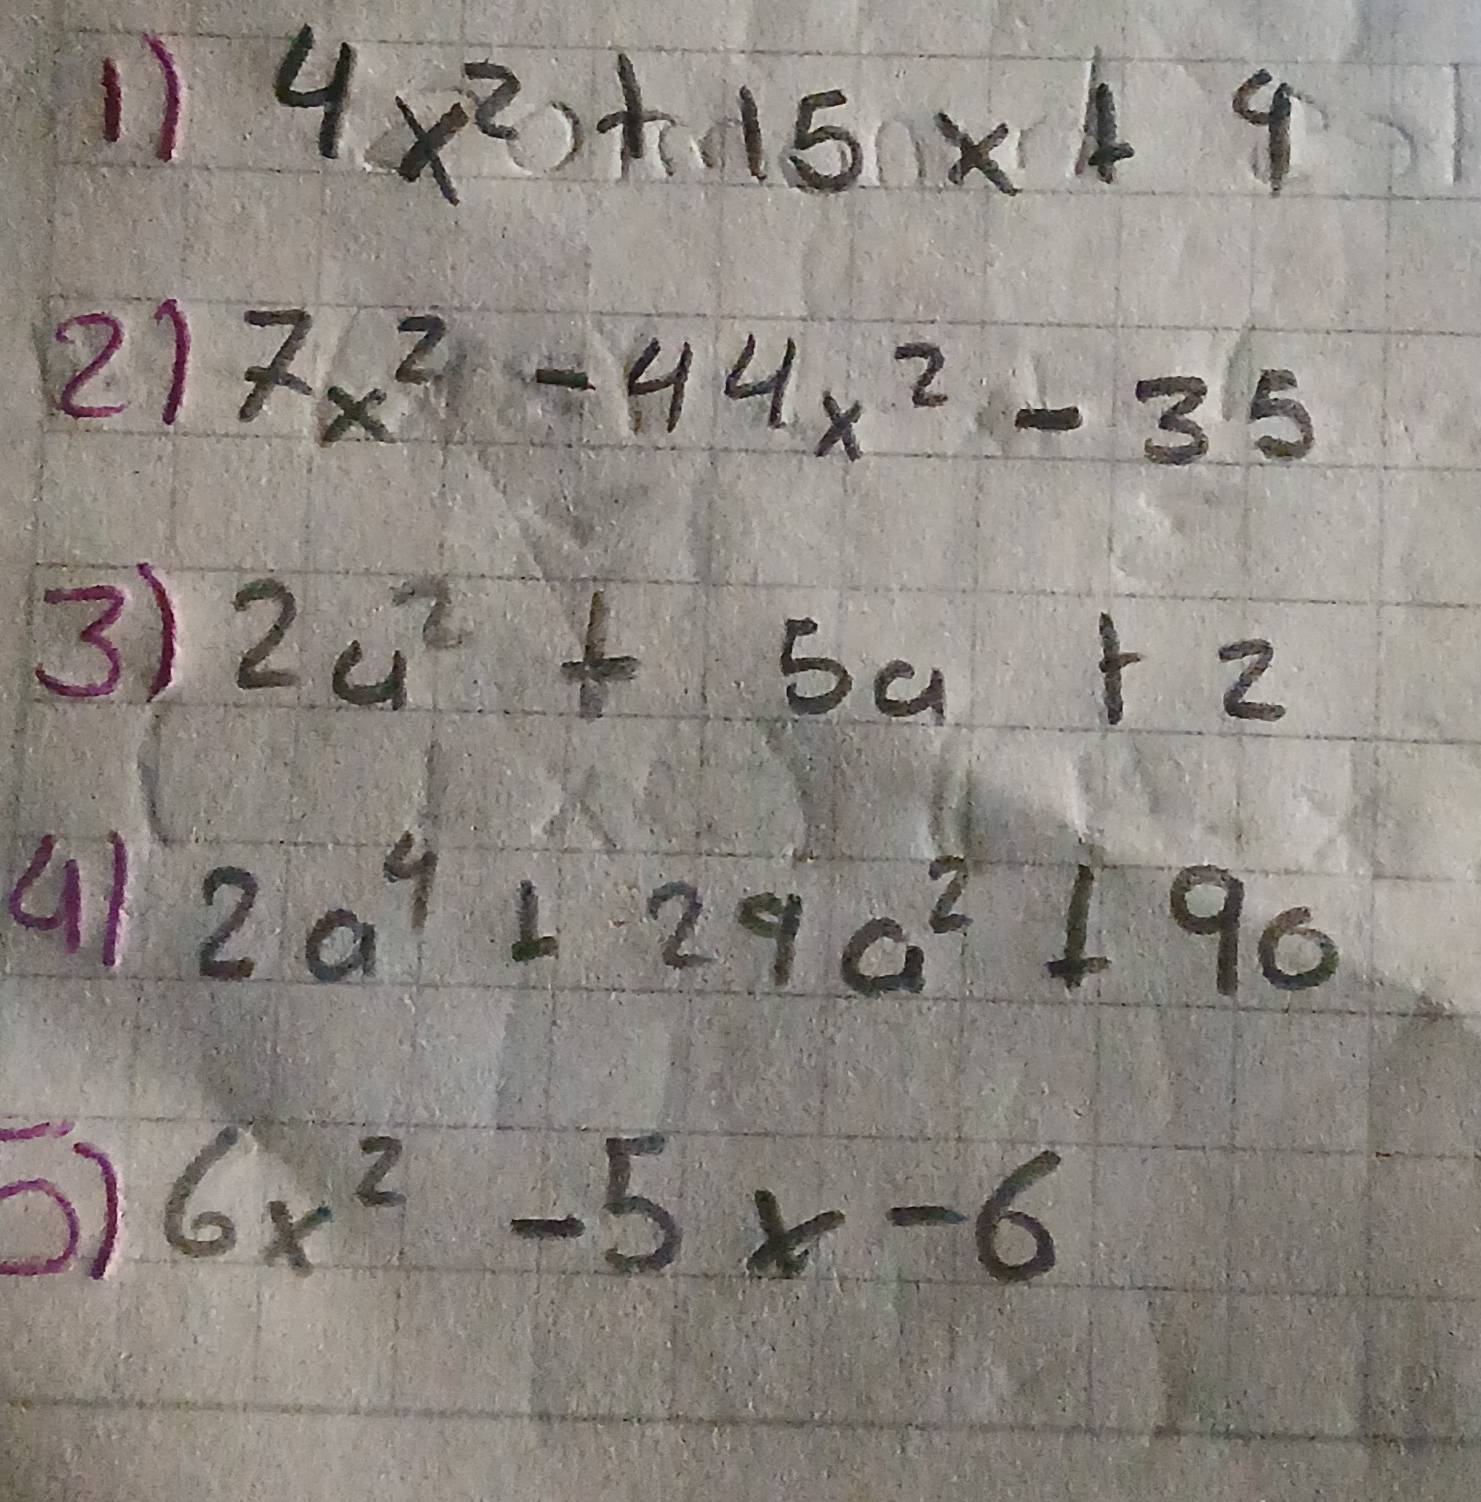 1) 4x² + 15x + 9
2) 7x² - 44x² - 35
3) 2a² + 5a + 2
4) 2a⁴ + 29a² + 90
5) 6x² - 5x - 6